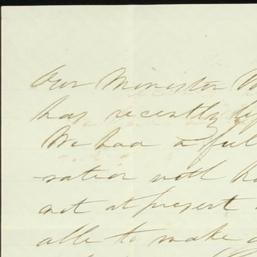 Our Minister
has recently
We had a full
sation with
not at present
able to make